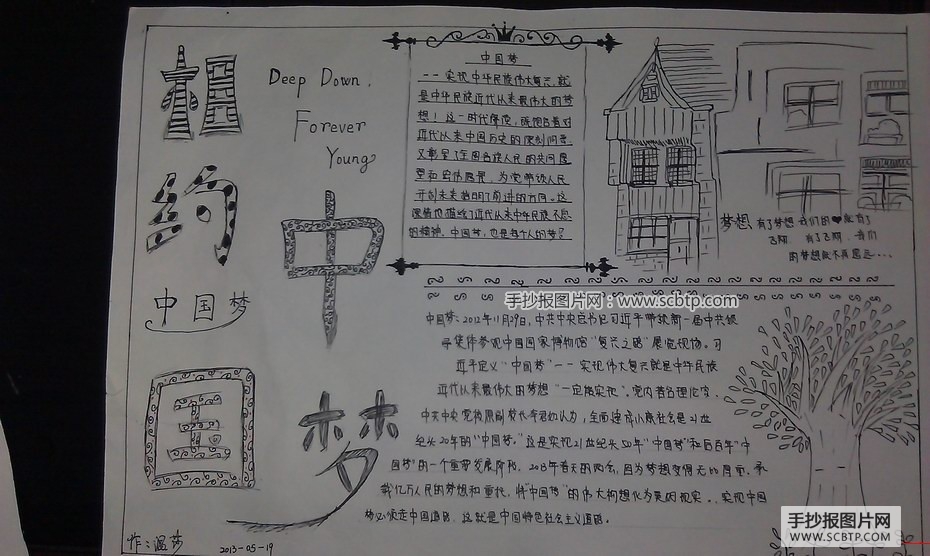 相约
中国梦
中国梦
Deep Down,
Forever
Young
中国梦
--实现中华民族伟大复兴,就
是中华民族近代以来最伟大的梦
想!这一时代解读,既饱含着对
近代以来中国历史的深刻洞悉
又彰显了全国各族人民的共同愿
望和宏伟愿景,为党带领人民
开创未来指明了前进的方向。这
的精神。中国梦,也是每个人的梦?
梦想 有了梦想,我们的❤就有了
飞翔 有了飞翔,我们
的梦想就不再遥远...
手抄报图片网:www.scbtp.com
中国梦:2012年11月29日,中共中央总书记习近平带领新一届中共领
导集体参观中国国家博物馆“复兴之路”展览现场。习
近平定义“中国梦”--实现伟大复兴就是中华民族
近代以来最伟大的梦想“一定能实现”。党内著名理论家、
中共中央党校原副校长李君如认为,全面建设小康社会是21世
纪头20年的“中国梦。”这是实现21世纪头50年“中国梦”和后百年“中
国梦”的一个重要发展阶段。2013年春天的两会,因为梦想变得无比厚重,承
载亿万人民的梦想和重托,将“中国梦”的伟大构想化为美好现实。实现中国
梦必须走中国道路,这就是中国特色社会主义道路。
作:温莎
2013-05-19
手抄报图片网
WWW.SCBTP.COM